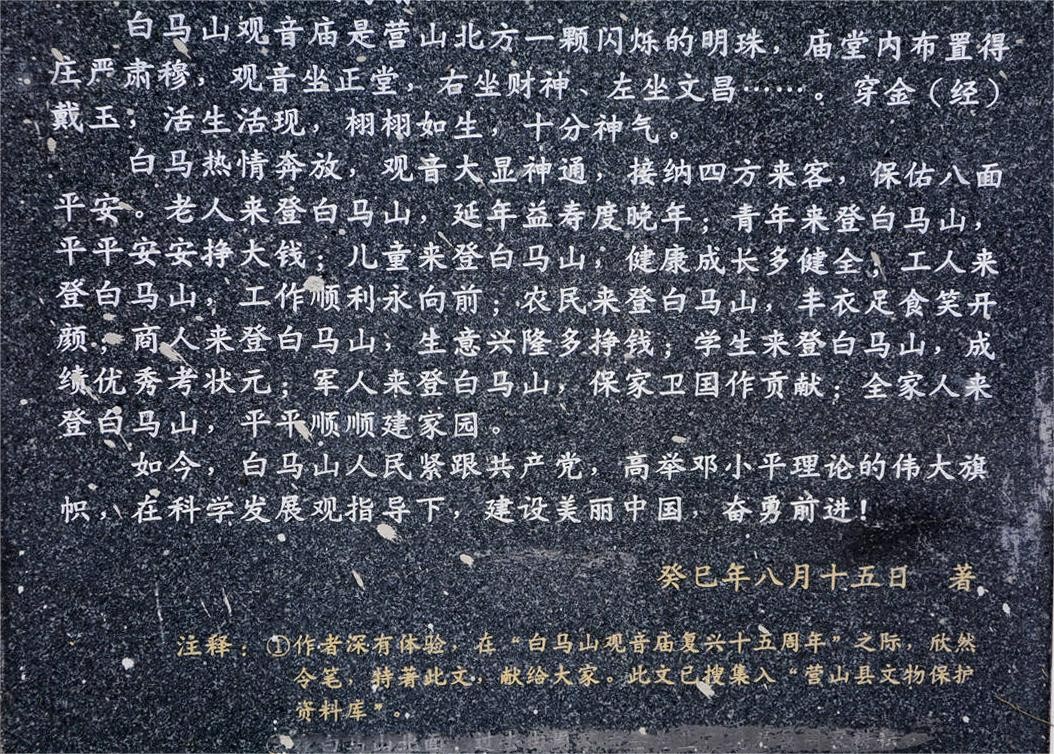 白马山观音庙是营山北方一颗闪烁的明珠，庙堂内布置得
庄严肃穆，观音坐正堂，右坐财神、左坐文昌……。穿金（经）
戴玉；活生活现，栩栩如生，十分神气。
白马热情奔放，观音大显神通，接纳四方来客，保佑八面
平安。老人来登白马山，延年益寿度晚年；青年来登白马山，
平平安安挣大钱；儿童来登白马山，健康成长多健全；工人来
登白马山，工作顺利永向前；农民来登白马山，丰衣足食笑开
颜；商人来登白马山，生意兴隆多挣钱；学生来登白马山，成
绩优秀考状元；军人来登白马山，保家卫国作贡献；全家人来
登白马山，平平顺顺建家园。
如今，白马山人民紧跟共产党，高举邓小平理论的伟大旗
帜，在科学发展观指导下，建设美丽中国，奋勇前进！
癸巳年八月十五日 著
注释：①作者深有体验，在“白马山观音庙复兴十五周年”之际，欣然
令笔，特著此文，献给大家。此文已搜集入“营山县文物保护
资料库”。